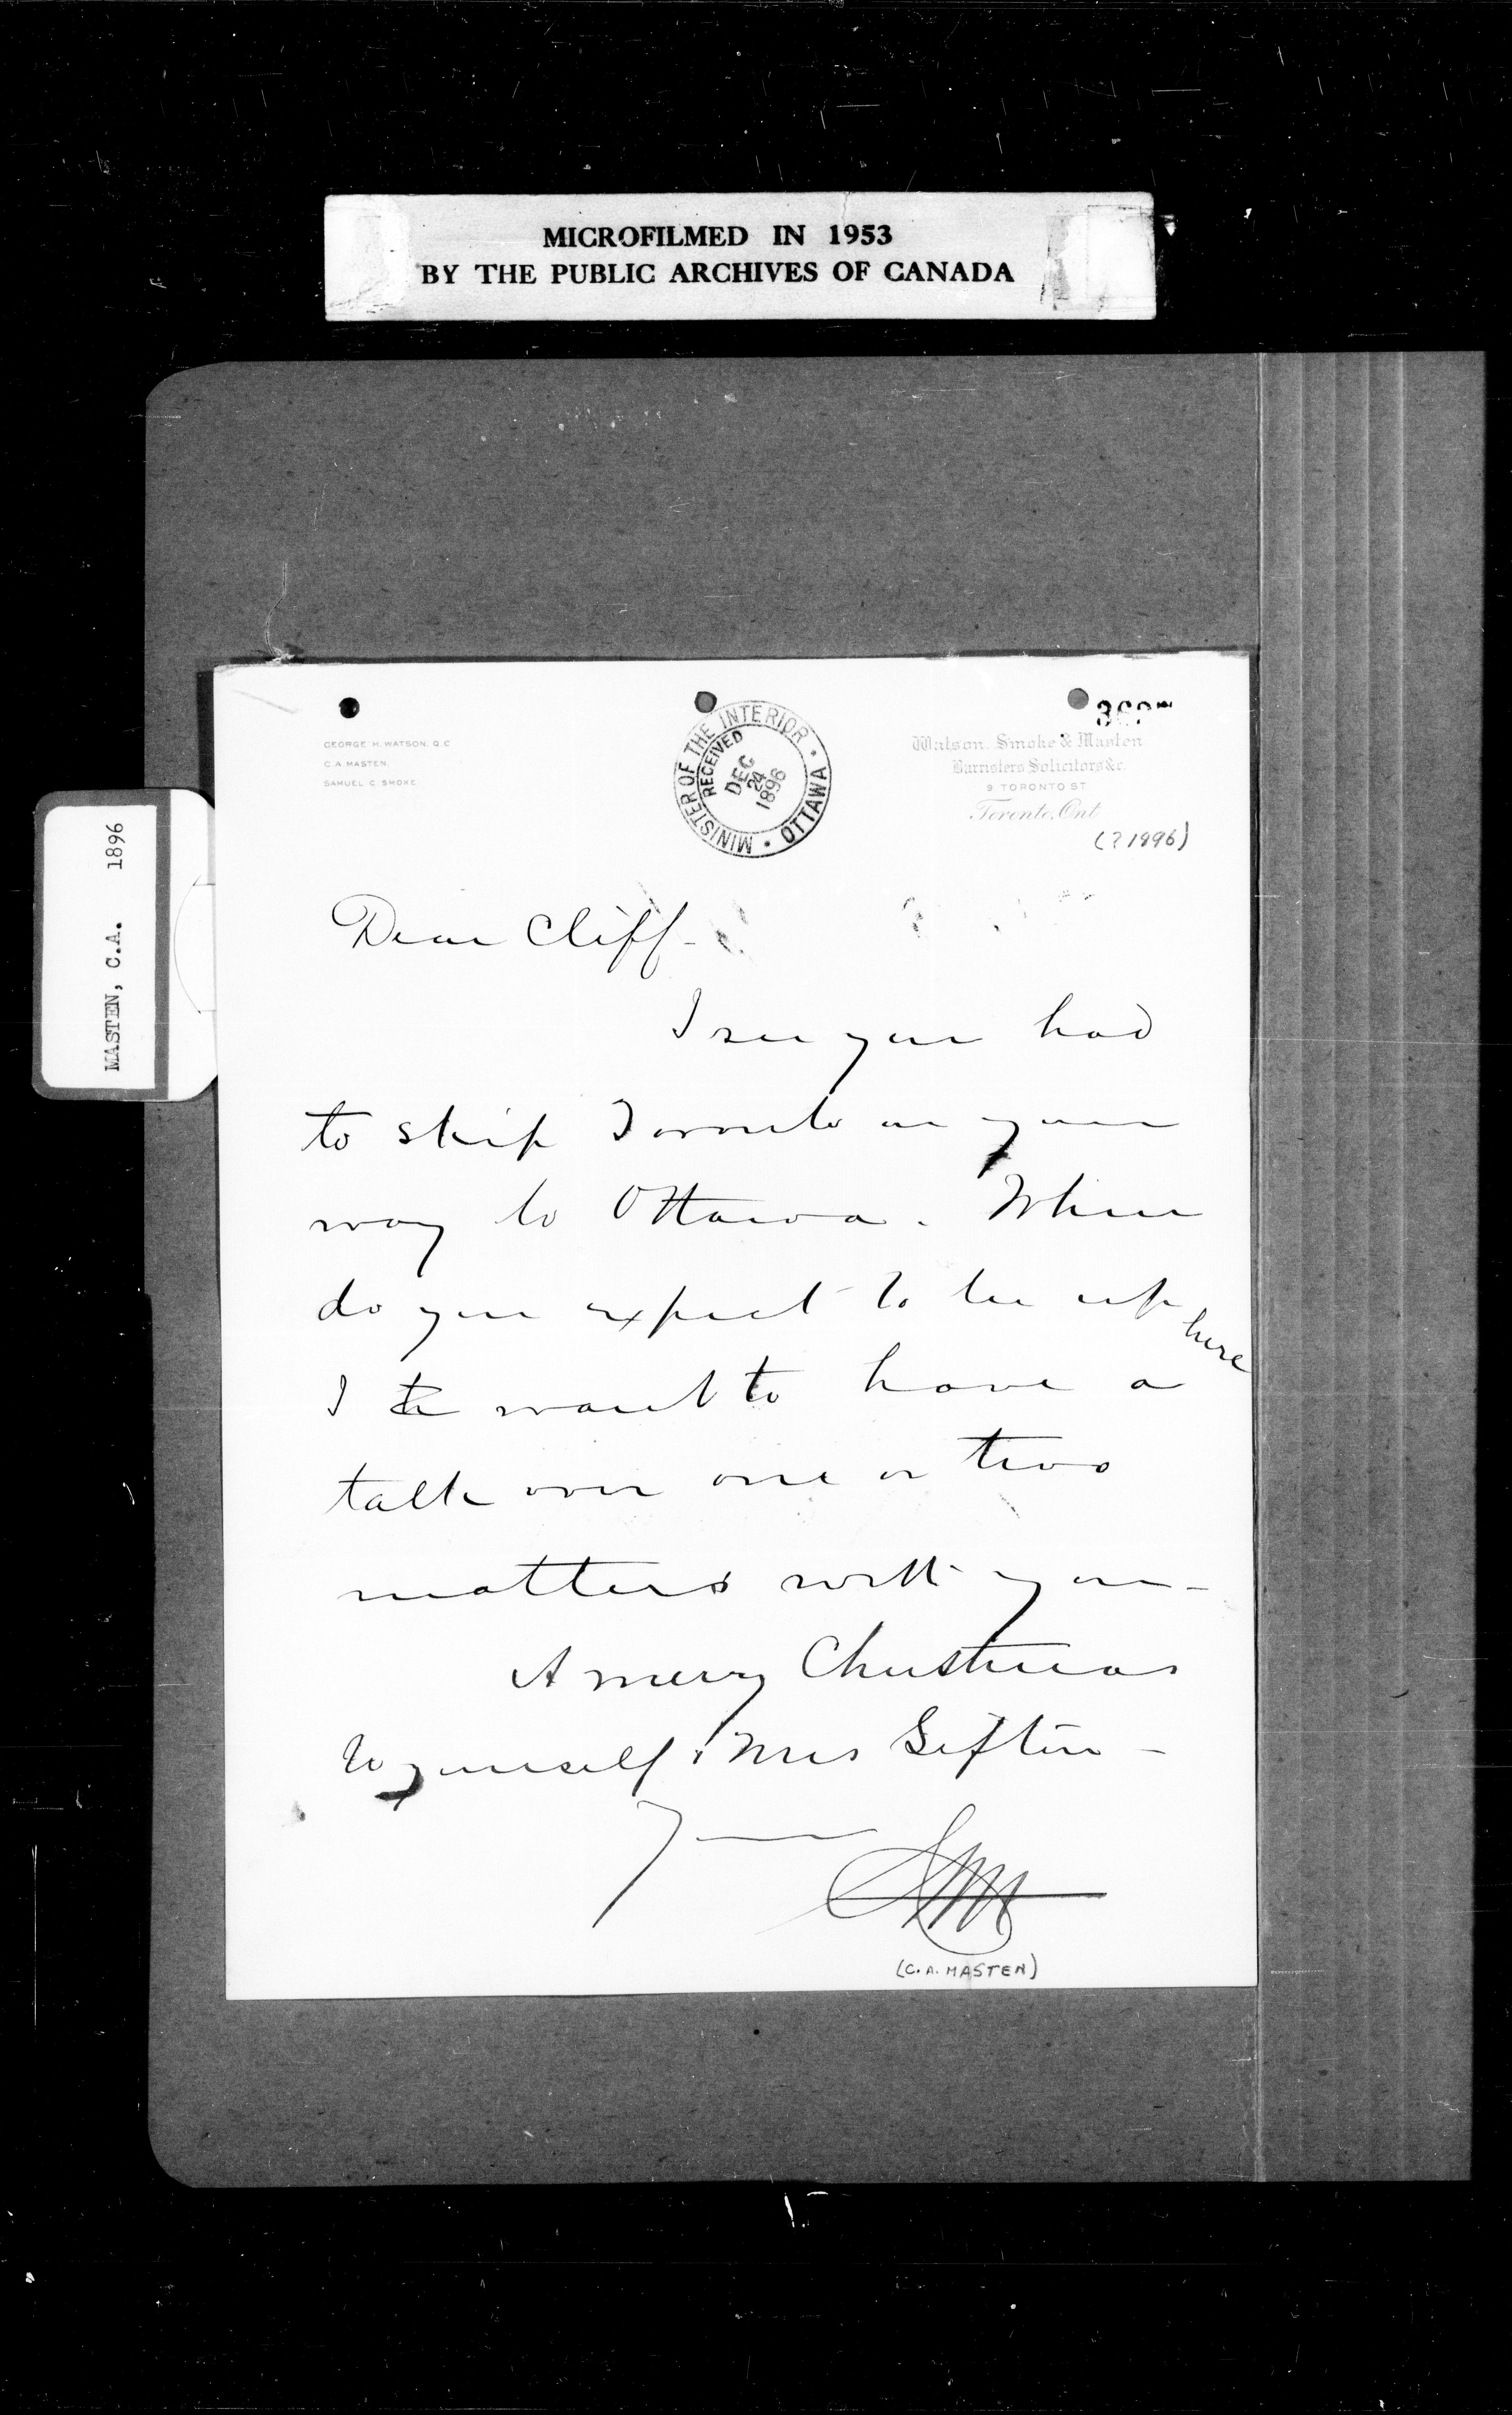 MICROFILMED IN 1953
BY THE PUBLIC ARCHIVES OF CANADA
MASTEN, C.A. 1896
GEORGE H. WATSON, Q.C.
C.A. MASTEN,
SAMUEL C. SMOKE.
MINISTER OF THE INTERIOR • OTTAWA •
RECEIVED
DEC
24
1896
Watson, Smoke & Masten
Barristers Solicitors &c.
9 TORONTO ST.
Toronto, Ont
(? 1896)
Dear Cliff-
I see you had
to skip Toronto on your
way to Ottawa. When
do you expect to be up here
I want to have a
talk over one or two
matters with you -
A merry Christmas
to yourself & Mrs Sifton -
Yours
(C.A. MASTEN)